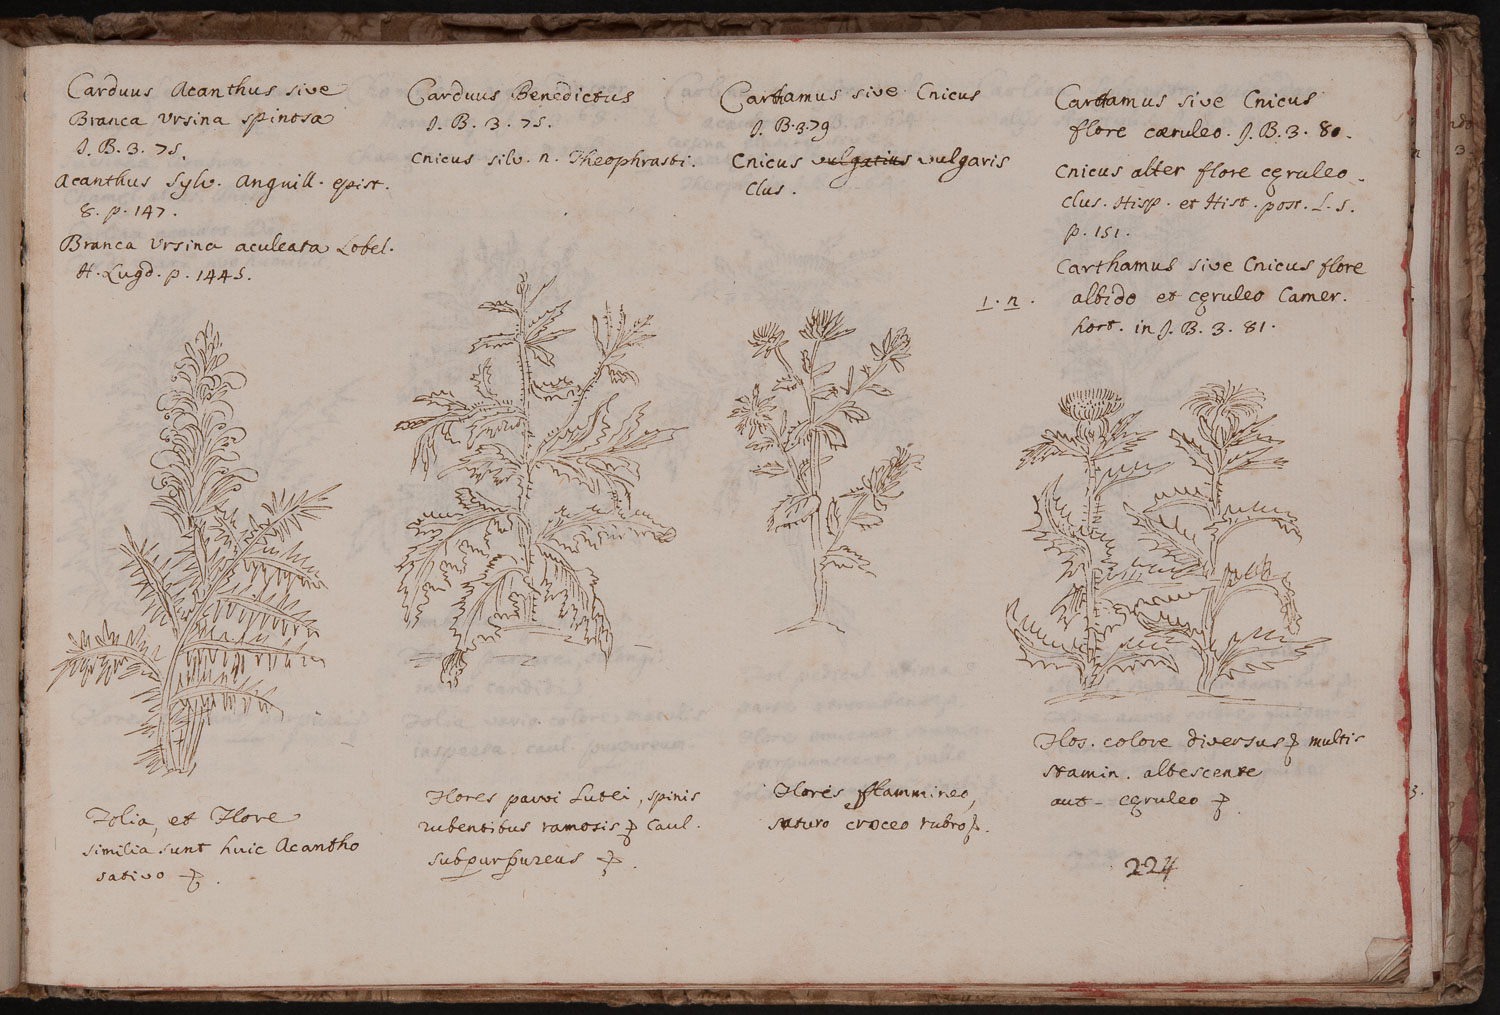 Carduus Acanthus sive
Branca Ursina spinosa
J. B. 3. 75.
Acanthus Sylv. Anguill. epist.
8. p. 147.
Branca Ursina aculeata Lobel.
H. Lugd. p. 1445.
Folia, et Flore
similia sunt huic Acantho
sativo
Carduus Benedictus
J. B. 3. 75.
Cnicus silv. n. Theophrasti.
Flores parvi Lutei, spinis
rubentibus ramosis Caul.
subpurpureus
Carthamus sive Cnicus
J. B. 3. 79
Cnicus vulgatius vulgaris
Clus.
Flores flammineo,
saturo croceo rubro
Carthamus sive Cnicus
flore cæruleo. J. B. 3. 80.
Cnicus alter flore cęruleo.
Clus. Hisp. et Hist. post. L. 5.
p. 151.
Carthamus sive Cnicus flore
1. n. albido et cęruleo Camer.
hort. in J. B. 3. 81.
Flos. colore diversus multis
stamin. albescente
aut - cęruleo
224